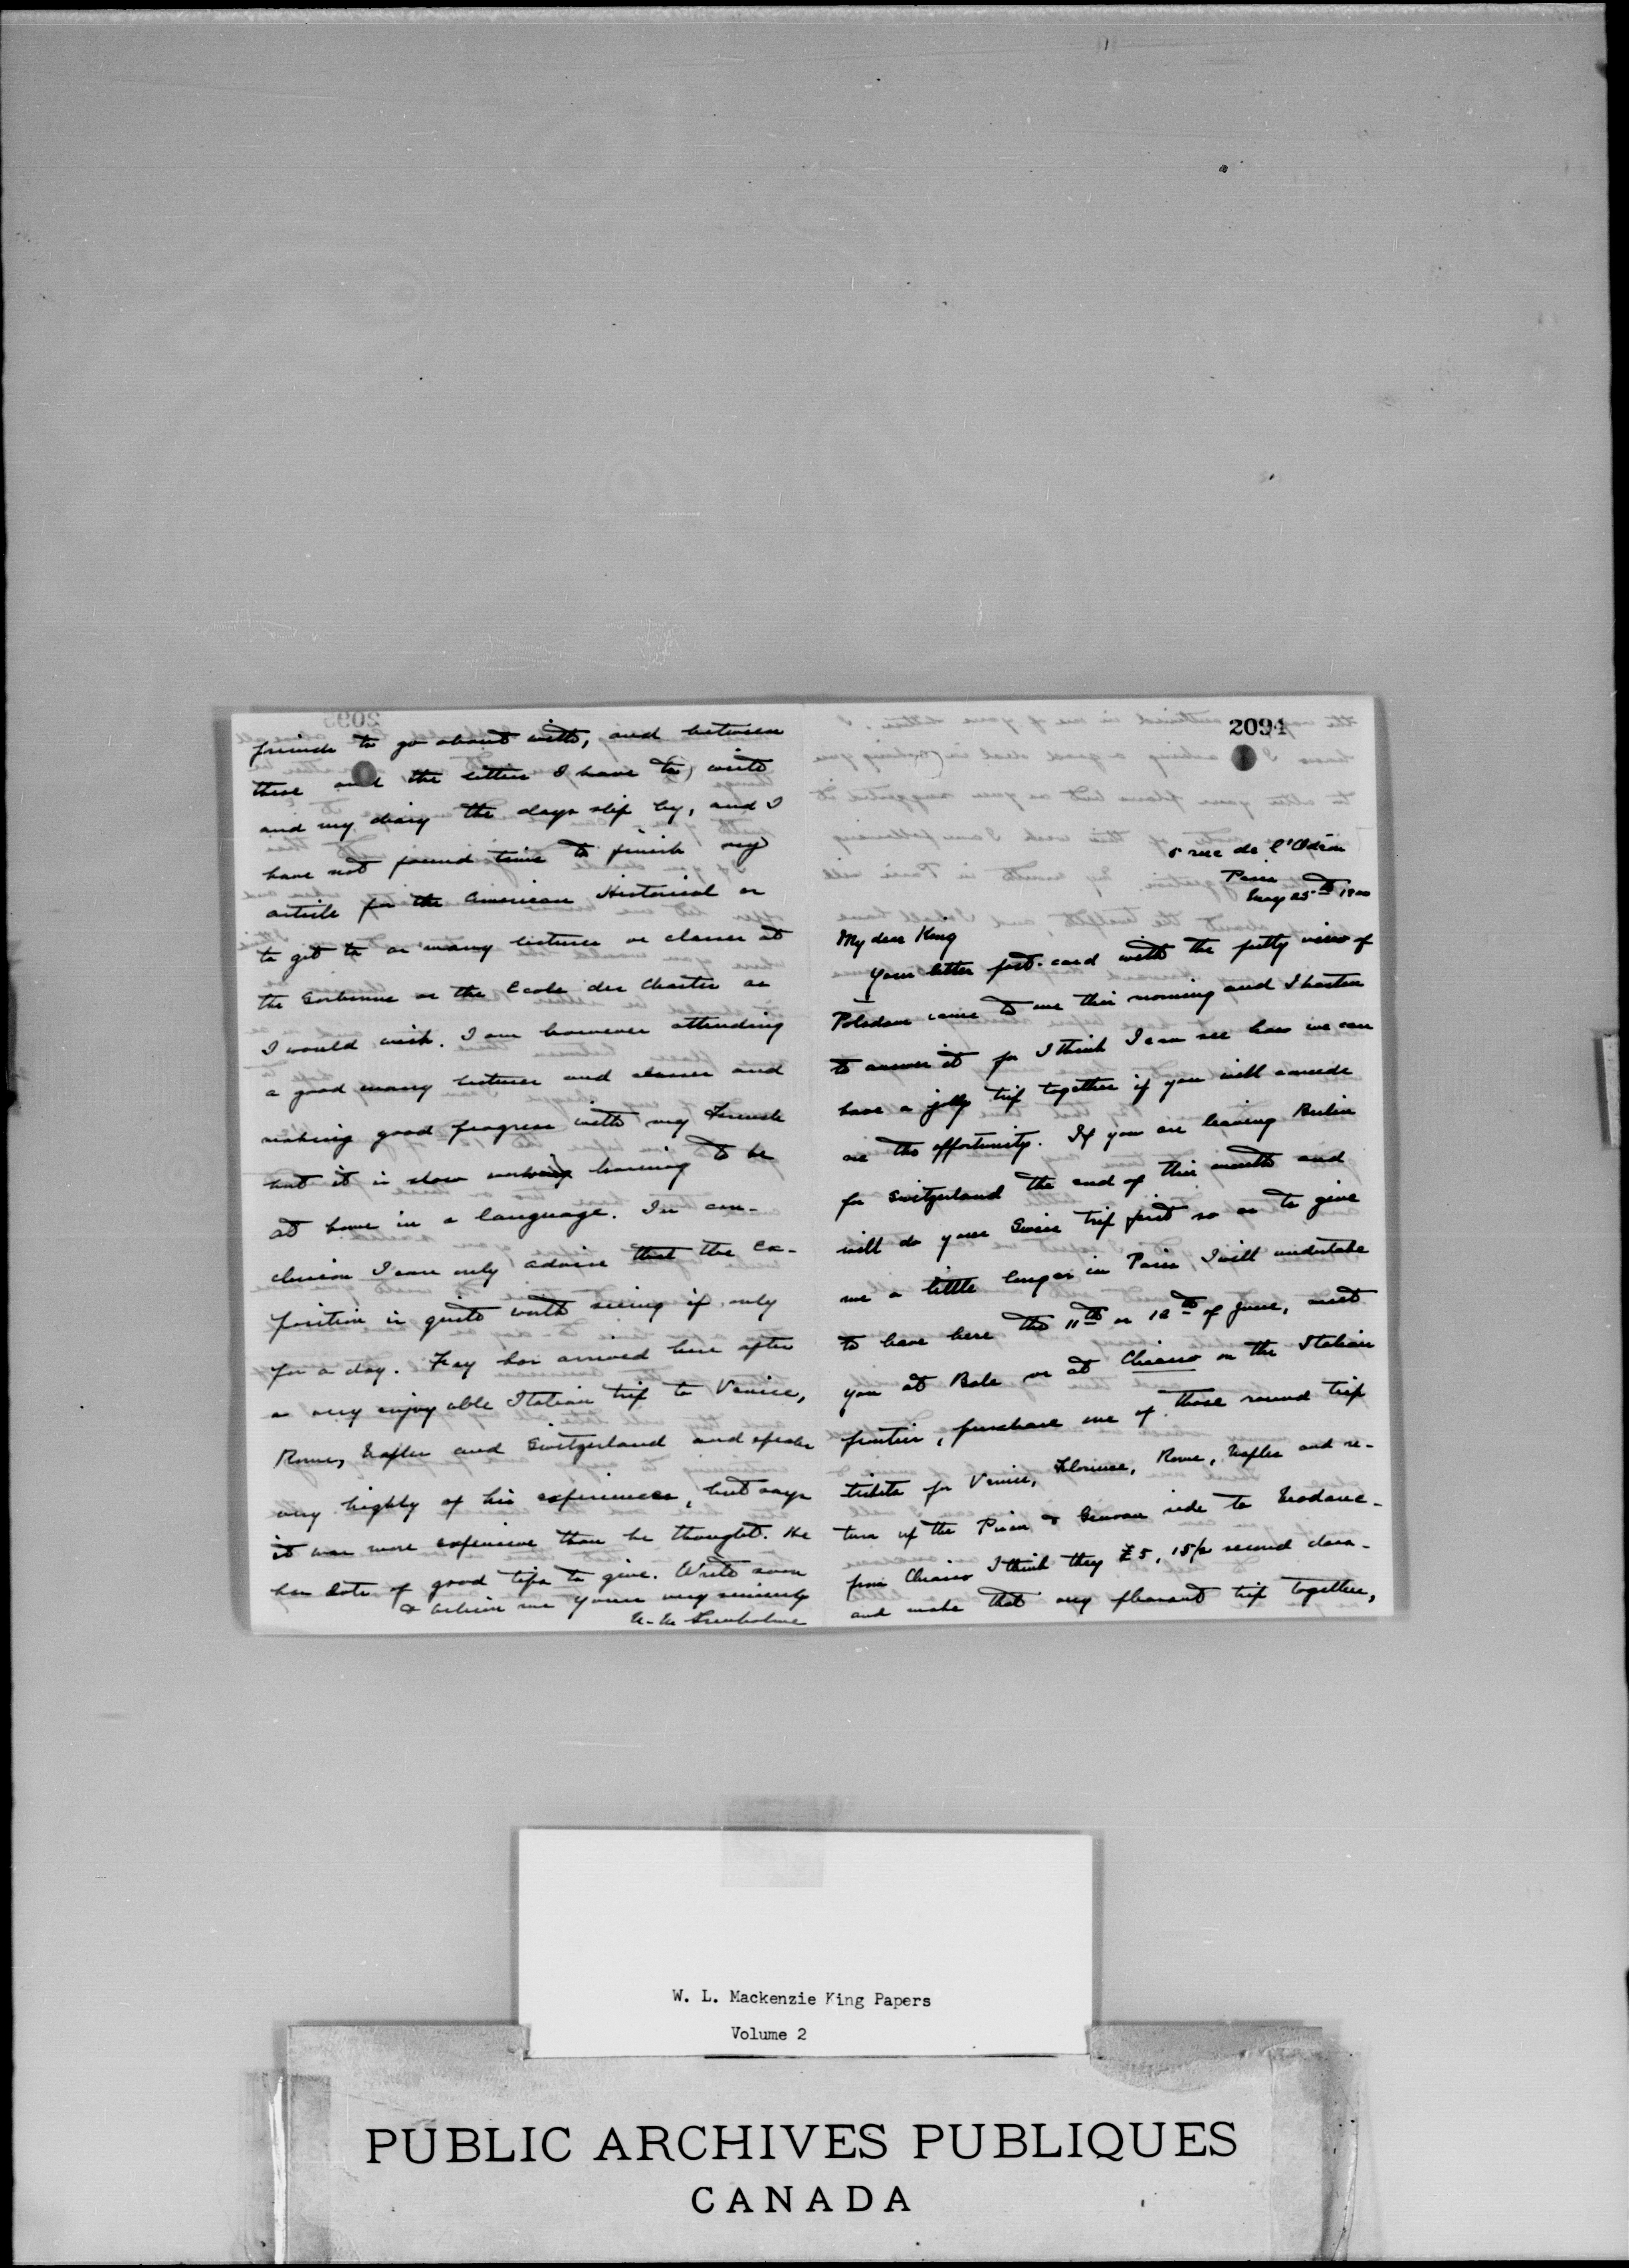 2094
5 rue de l'Odéon
Paris
May 25th 1900
My dear King
Your letter post-card with the pretty view of
Potsdam came to me this morning and I hasten
to answer it for I think I can see how we can
have a jolly trip together if you will concede
me the opportunity. If you are leaving Berlin
for Switzerland the end of this month and
will do your Swiss trip first so as to give
me a little longer in Paris, I will undertake
to leave here the 11th or 12th of June, meet
you at Bale or at Chiasso on the Italian
frontier, purchase one of those round trip
tickets for Venice, Florence, Rome, Naples and re-
turn up the Pisan & Genoan side to Modane -
from Chiasso I think they £5, 15/2 second class -
and make that very pleasant trip together,
friends to go about with, and between
these and the letters I have to write
and my diary the days slip by, and I
have not found time to finish my
article for the American Historical or
to get to as many lectures or classes at
the Sorbonne or the Ecole des Chartes as
I would wish. I am however attending
a good many lectures and classes and
making good progress with my French
but it is slow working learning to be
at home in a language. In con-
clusion I can only advise that the Ex-
position is quite worth seeing if only
for a day. Fay has arrived here after
a very enjoyable Italian trip to Venice,
Rome, Naples and Switzerland and speaks
very highly of his experiences, but says
it was more expensive than he thought. He
has lots of good tips to give. Write soon
& believe me yours very sincerely
N. M. Trenholme
W. L. Mackenzie King Papers
Volume 2
PUBLIC ARCHIVES PUBLIQUES
CANADA